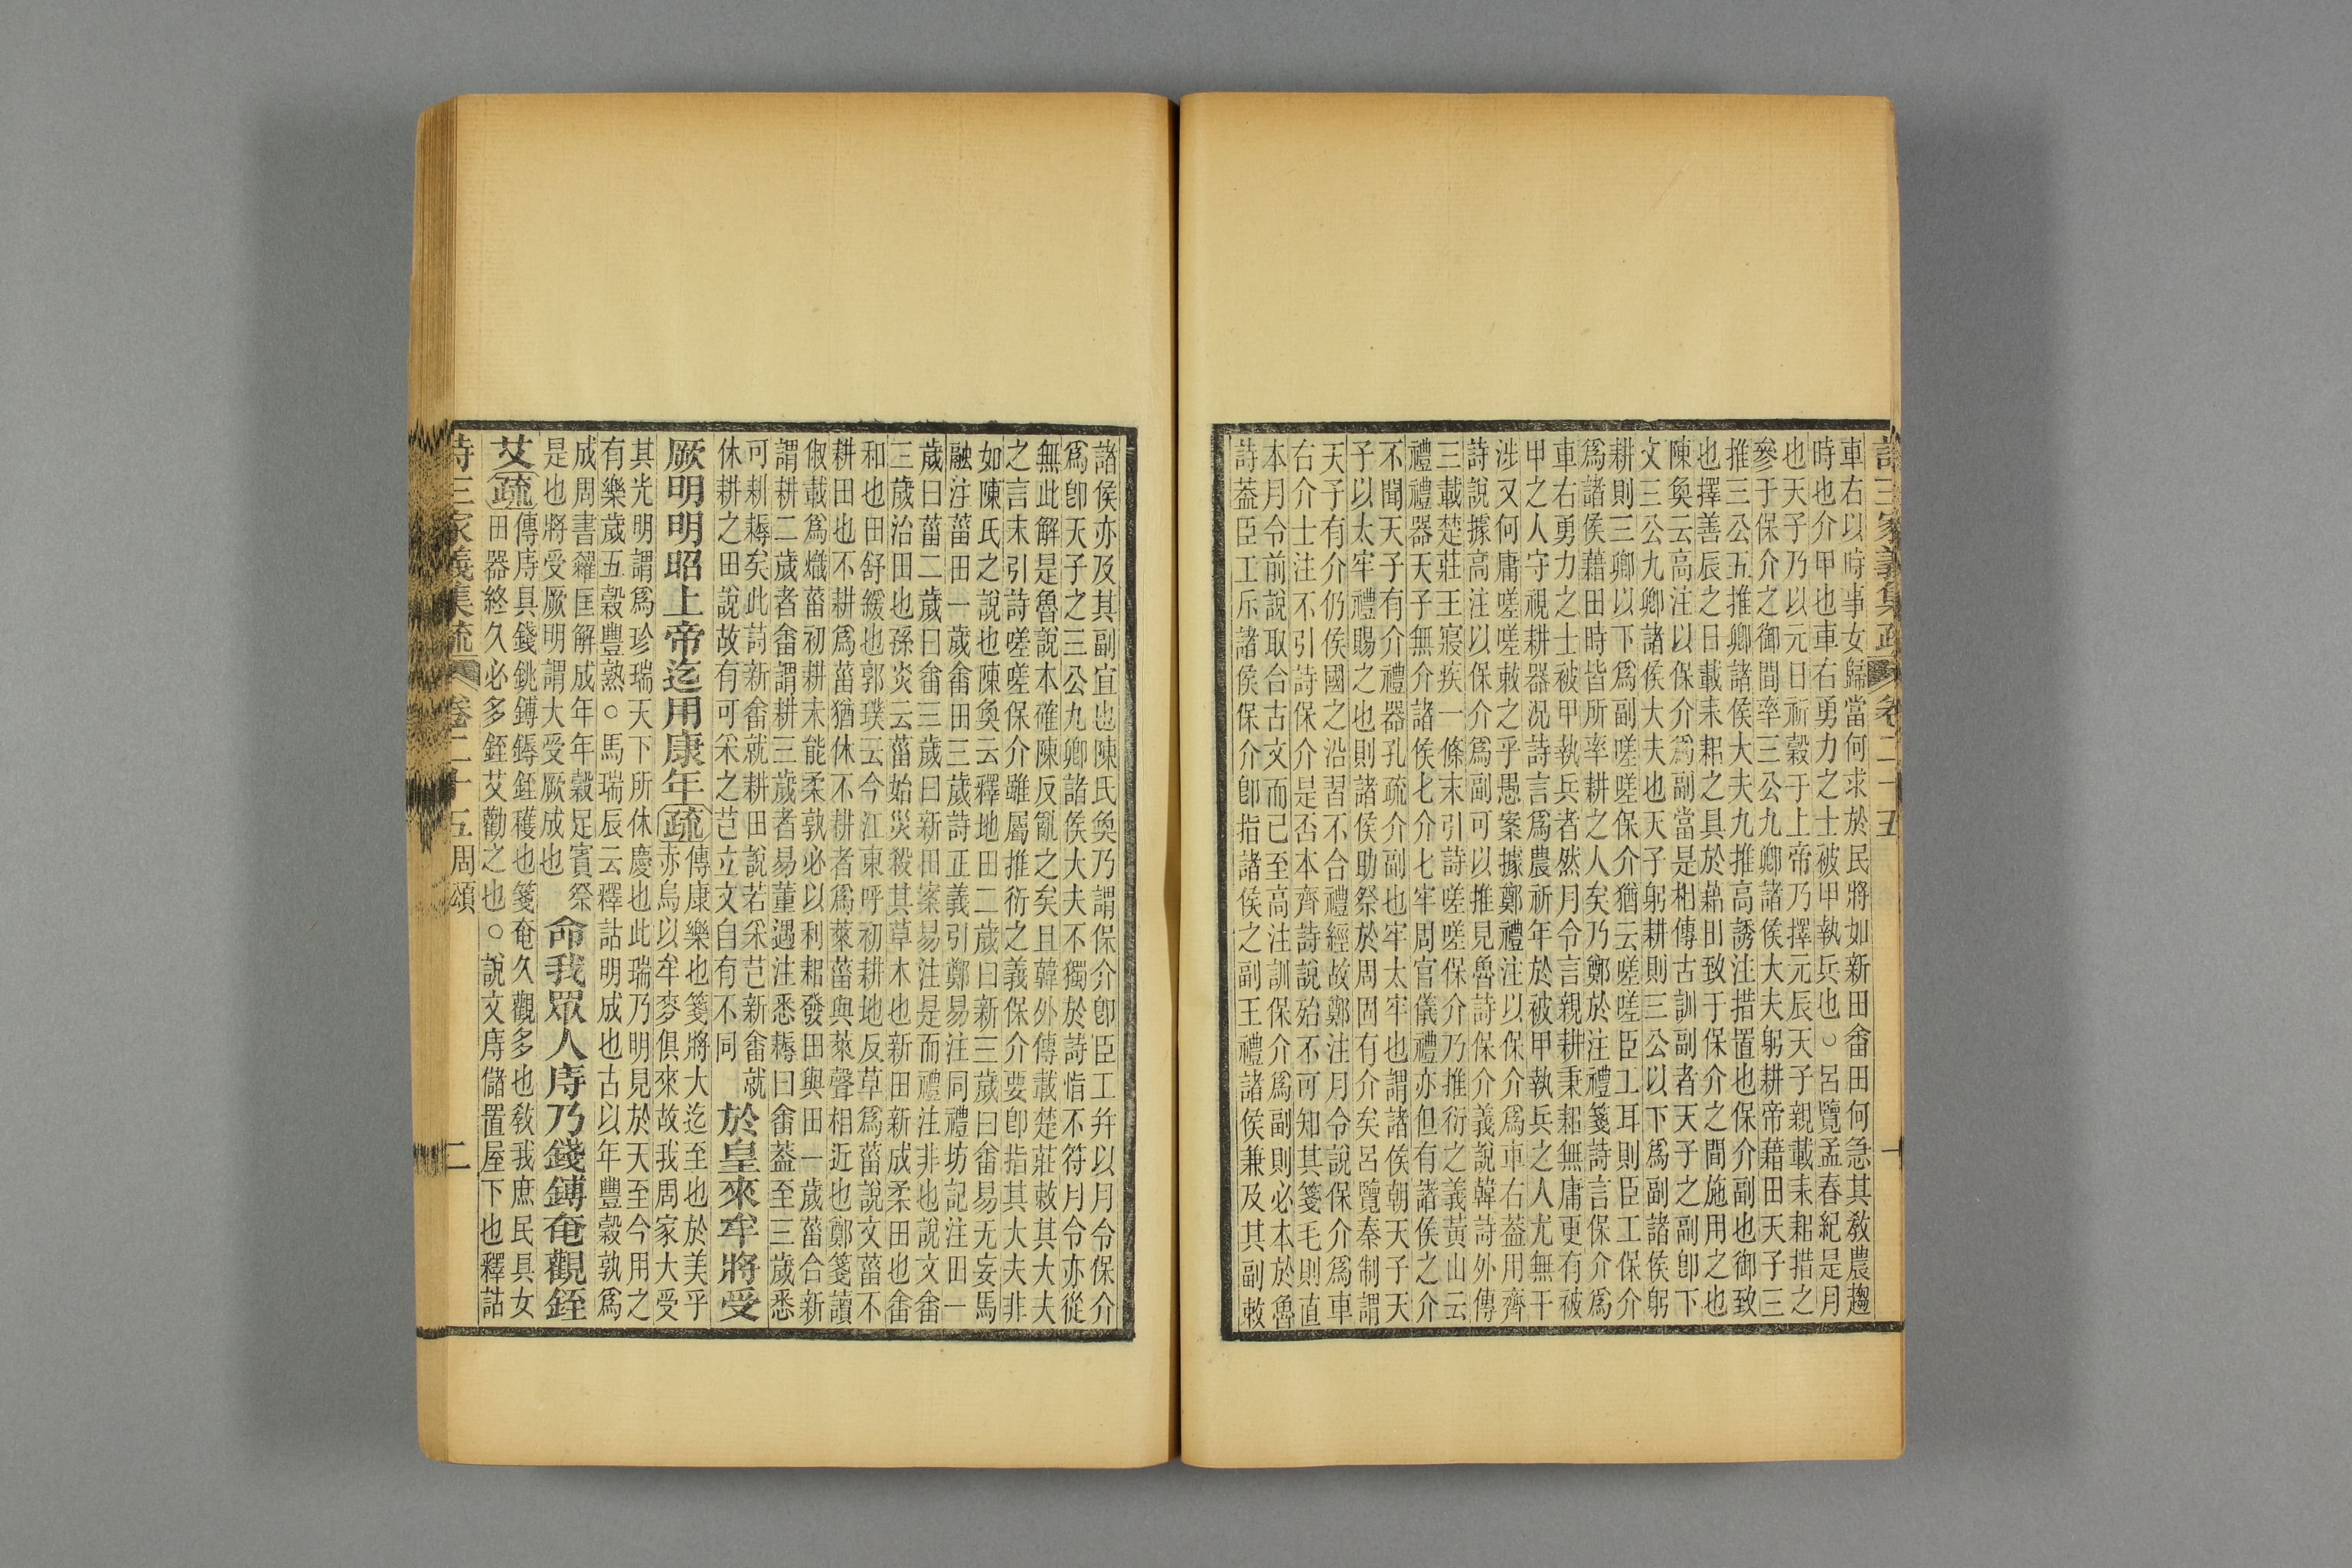 詩三家義集疏 卷二十五
車右以時事女歸當何求於民將如新田畬田何急其敎農趨
時也介甲也車右勇力之士被甲執兵也○呂覽孟春紀是月
也天子乃以元日祈穀于上帝乃擇元辰天子親載耒耜措之
參于保介之御間率三公九卿諸侯大夫躬耕帝藉田天子三
推三公五推卿諸侯大夫九推高誘注措置也保介副也御致
也擇善辰之日載耒耜之具於藉田致于保介之間施用之也
陳奐云高注以保介爲副當是相傳古訓副者天子之副卽下
文三公九卿諸侯大夫也天子躬耕則三公以下爲副諸侯躬
耕則三卿以下爲副嗟嗟保介猶云嗟嗟臣工耳則臣工保介
爲諸侯藉田時皆所率耕之人矣乃鄭於注禮箋詩言保介爲
車右勇力之士被甲執兵者然月令言親耕秉耜無庸更有被
甲之人守視耕器況詩言爲農祈年於被甲執兵之人尤無干
涉又何庸嗟嗟敕之乎愚案據鄭禮注以保介爲車右蓋用齊
詩說據高注以保介爲副可以推見魯詩保介義說韓詩外傳
三載楚莊王寢疾一條末引詩嗟嗟保介乃推衍之義黃山云
禮禮器天子無介諸侯七介七牢周官儀禮亦但有諸侯之介
不聞天子有介禮器孔疏介副也牢太牢也謂諸侯朝天子天
子以太牢禮賜之也則諸侯助祭於周固有介矣呂覽秦制謂
天子有介仍侯國之沿習不合禮經故鄭注月令說保介爲車
右介士注不引詩保介是否本齊詩說殆不可知其箋毛則直
本月令前說取合古文而已至高注訓保介爲副則必本於魯
詩蓋臣工斥諸侯保介卽指諸侯之副王禮諸侯兼及其副敕
諸侯亦及其副宜也陳氏奐乃謂保介卽臣工幷以月令保介
爲卽天子之三公九卿諸侯大夫不獨於詩恉不符月令亦從
無此解是魯說本確陳反亂之矣且韓外傳載楚莊敕其大夫
之言末引詩嗟嗟保介雖屬推衍之義保介要卽指其大夫非
如陳氏之說也陳奐云釋地田二歲曰新三歲曰畬易无妄馬
融注菑田一歲畬田三歲詩正義引鄭易注同禮坊記注田一
歲曰菑二歲曰畬三歲曰新田案易注是而禮注非也說文畬
三歲治田也孫炎云菑始災殺其草木也新田新成柔田也畬
和也田舒緩也郭璞云今江東呼初耕地反草爲菑說文菑不
耕田也不耕爲菑猶休不耕者爲萊菑與萊聲相近也鄭箋讀
俶載爲熾菑初耕耒能柔孰必以利耜發田與田一歲菑合新
謂耕二歲者畬謂耕三歲者易董遇注悉耨曰畬蓋至三歲悉
可耕耨矣此詩新畬就耕田說若采芑新畬就
休耕之田說故有可采之芑立文自有不同 於皇來牟將受
厥明明昭上帝迄用康年疏傳康樂也箋將大迄至也於美乎
赤烏以牟麥俱來故我周家大受
其光明謂爲珍瑞天下所休慶也此瑞乃明見於天至今用之
有樂歲五穀豐熟○馬瑞辰云釋詁明成也古以年豐穀孰爲
成周書糴匡解成年年穀足賓祭
是也將受厥明謂大受厥成也 命我眾人庤乃錢鎛奄觀銍
艾疏傳庤具錢銚鎛鎒銍穫也箋奄久觀多也敎我庶民具女
田器終久必多銍艾勸之也○說文庤儲置屋下也釋詁
詩三家義集疏 卷二十五 周頌 二